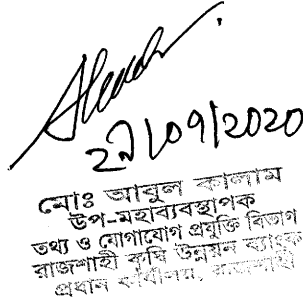 ২৯/০৭/2020
মোঃ আবুল কালাম
উপ-মহাব্যবস্থাপক
তথ্য ও যোগাযোগ প্রযুক্তি বিভাগ
রাজশাহী কৃষি উন্নয়ন ব্যাংক
প্রধান কার্যালয়, রাজশাহী